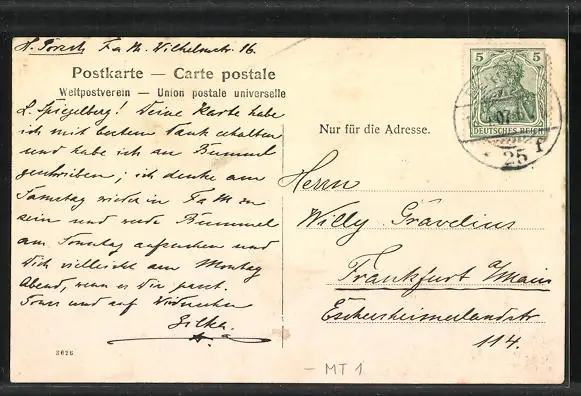 H. Porsch F a M. Wilhelmstr. 16.
Postkarte — Carte postale
Weltpostverein — Union postale universelle
L. Spiegelberg! Deine Karte habe
ich mit bestem Dank erhalten
und habe ich an Bummel
geschrieben; ich denke am
Samstag wieder in F a M zu
sein und werde Bummel
am Sonntag aufsuchen und
Dich vielleicht am Montag
Abend, wenn es Dir passt.
und auf Wiedersehen
3626
Nur für die Adresse.
Herrn
Willy Grävelius
Frankfurt a/Main
Eschersheimerlandstr
114.
5 5
DEUTSCHES REICH
07
25 f
- MT 1